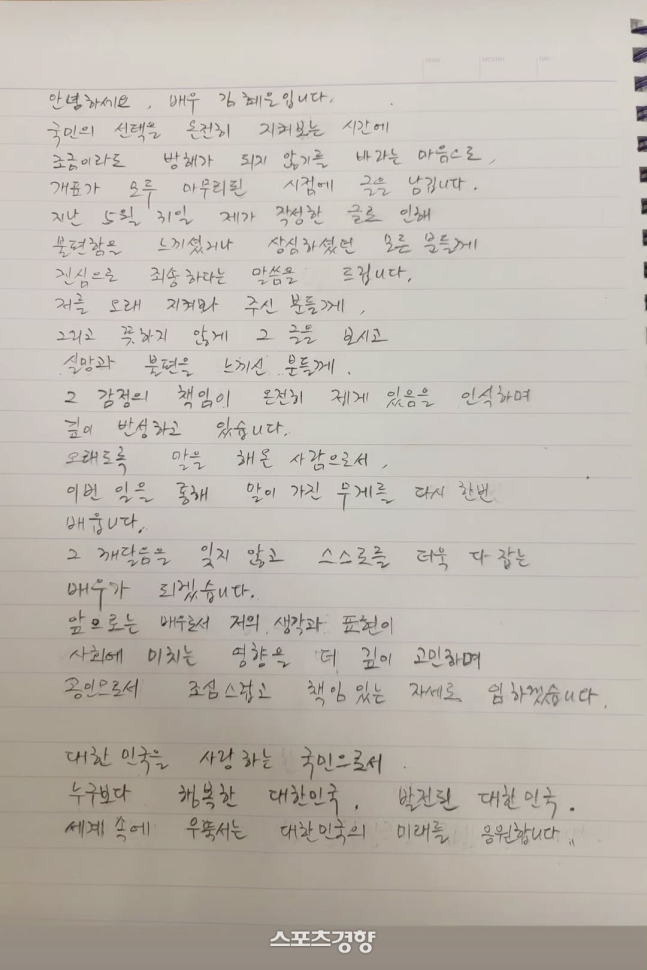 안녕하세요, 배우 김혜은입니다.
국민의 선택을 온전히 지켜보는 시간에
조금이라도 방해가 되지 않기를 바라는 마음으로,
개표가 모두 마무리된 시점에 글을 남깁니다.
지난 5월 31일 제가 작성한 글로 인해
불편함을 느끼셨거나 상심하셨던 모든 분들께
진심으로 죄송하다는 말씀을 드립니다.
저를 오래 지켜봐 주신 분들께,
그리고 뜻하지 않게 그 글을 보시고
실망과 불편을 느끼신 분들께.
그 감정의 책임이 온전히 제게 있음을 인식하며
깊이 반성하고 있습니다.
오래도록 말을 해온 사람으로서,
이번 일을 통해 말이 가진 무게를 다시 한번
배웁니다.
그 깨달음을 잊지 않고 스스로를 더욱 다잡는
배우가 되겠습니다.
앞으로는 배우로서 저의 생각과 표현이
사회에 미치는 영향을 더 깊이 고민하며
공인으로서 조심스럽고 책임 있는 자세로 임하겠습니다.
대한민국을 사랑하는 국민으로서
누구보다 행복한 대한민국, 발전된 대한민국.
세계 속에 우뚝서는 대한민국의 미래를 응원합니다.
스포츠경향